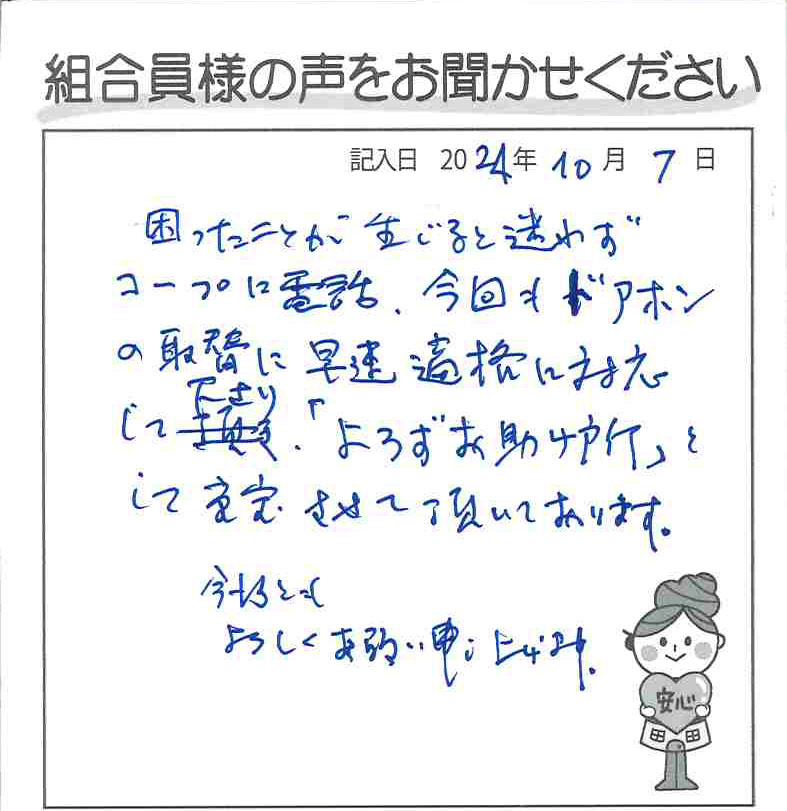 組合員様の声をお聞かせください
記入日 2024年 10月 7日
困ったことが生じると迷わず
コープに電話、今回もドアホン
の取替に早速適格に対応
して下さり、「よろずお助け所」と
して重宝させて頂いております。
今後とも
よろしくお願い申し上げます。
安心